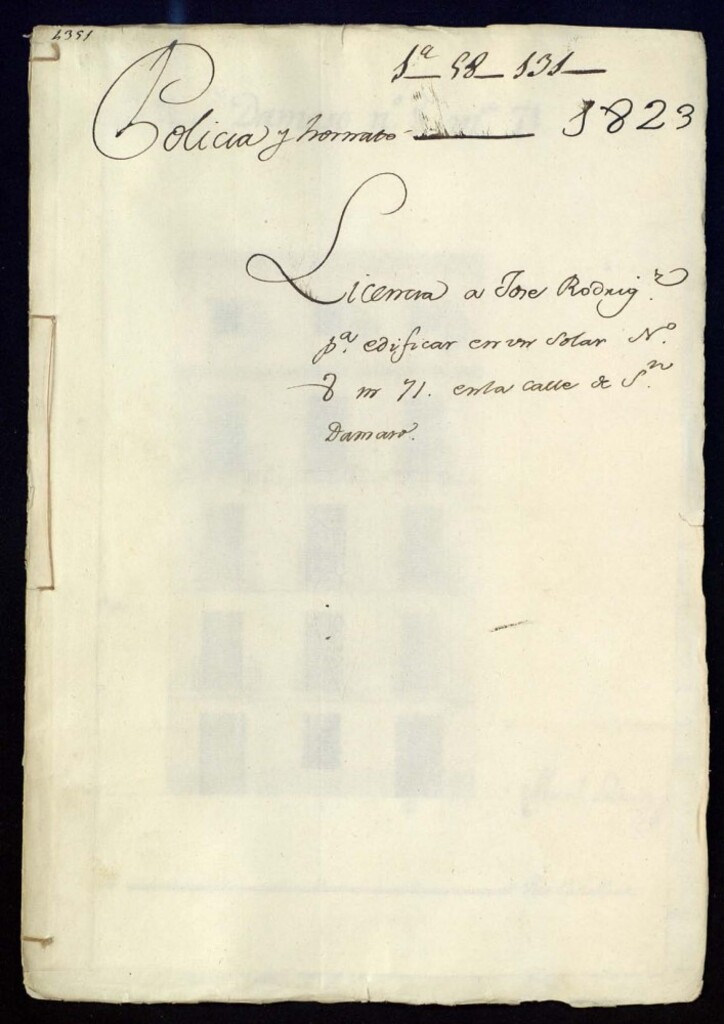 1351
1ª 58 131
Policia y hornato 1823
Licencia a Jose Rodrig.z
pª. edificar en un Solar N.º
8 m 71. en la calle de S.n
Damaso.